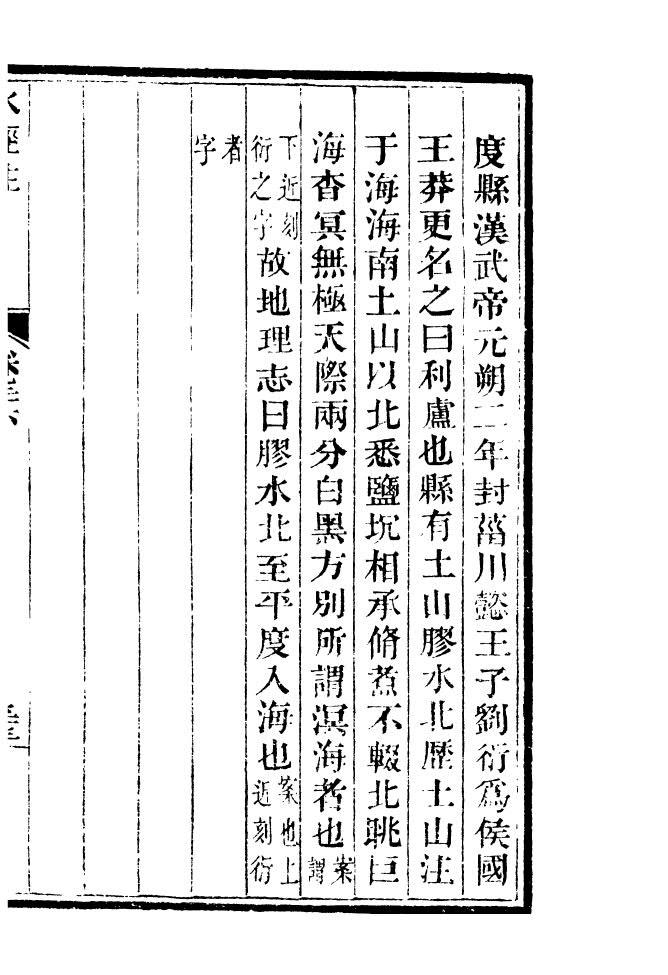 度縣漢武帝元朔二年封菑川懿王子劉衍爲侯國
王莽更名之曰利盧也縣有土山膠水北歷土山注
于海海南土山以北悉鹽坑相承脩煮不輟北眺巨
海杳冥無極天際兩分白黑方別所謂溟海者也案謂
下近刻衍之字故地理志曰膠水北至平度入海也案也上近刻衍
者字
水經注